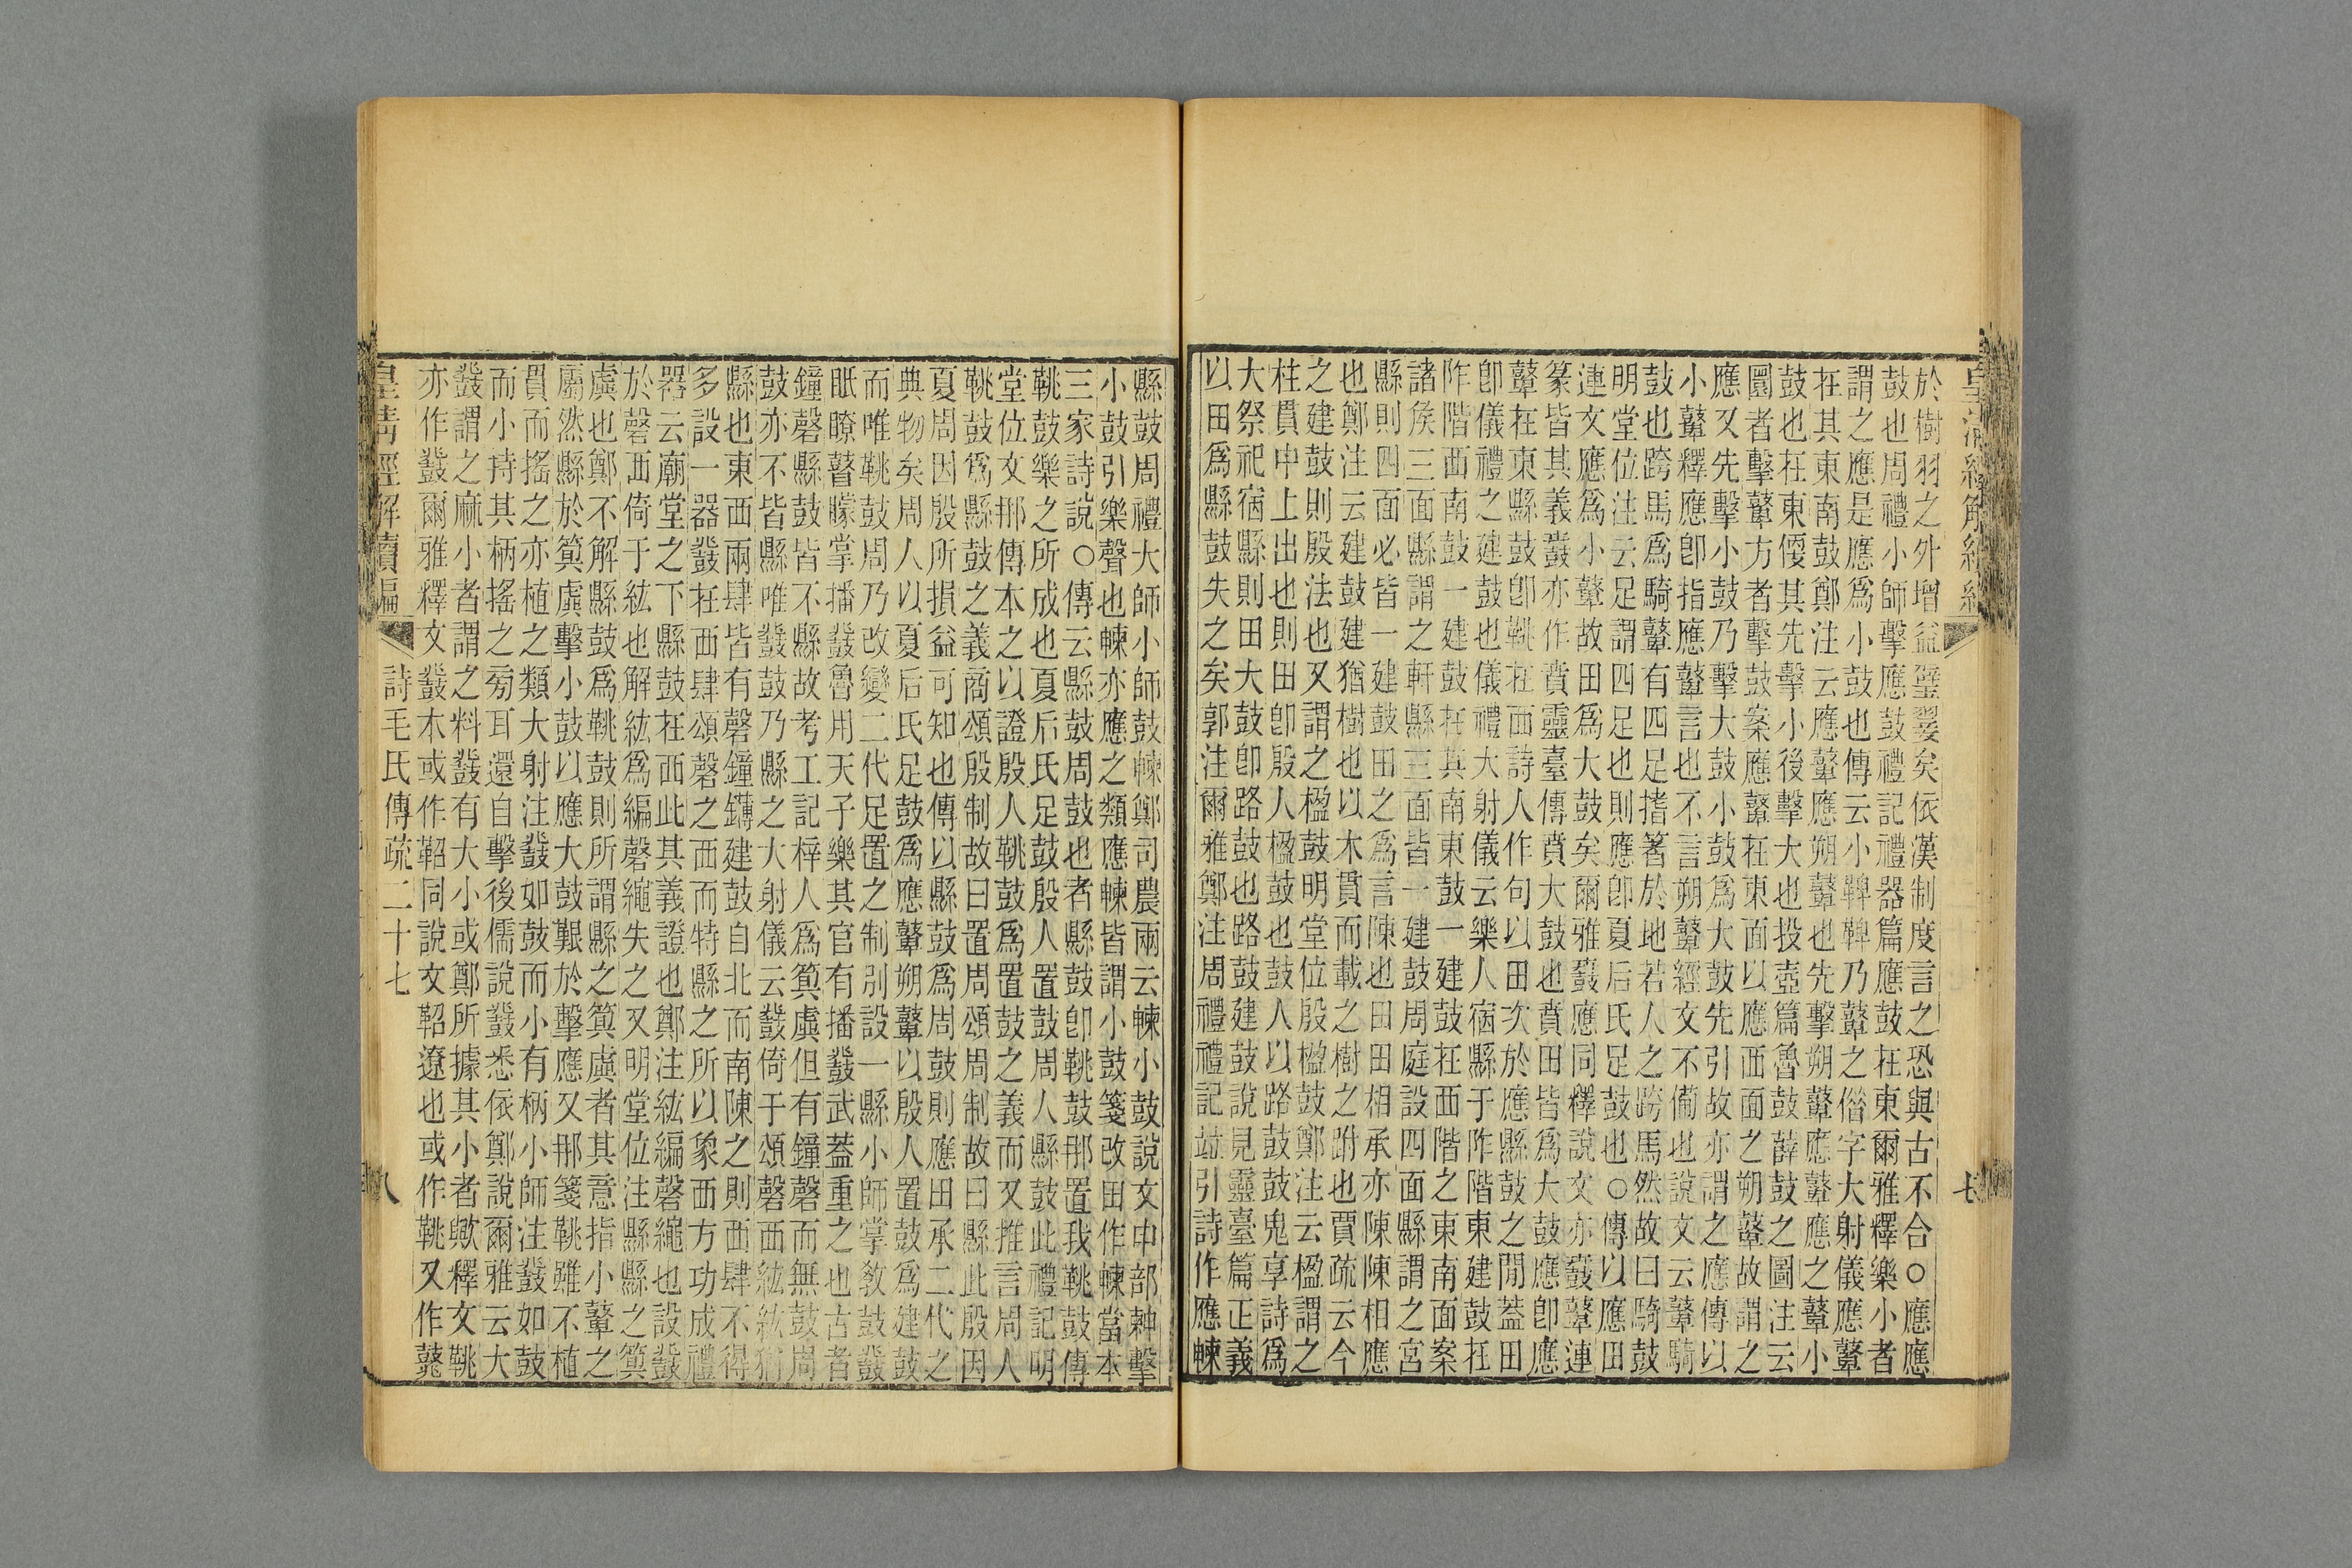 於樹羽之外增益璧翣矣依漢制度言之恐與古不合○應應
鼓也周禮小師擊應鼓禮記禮器篇應鼓在東爾雅釋樂小者
謂之應是應爲小鼓也傳云小鞞鞞乃鼙之偕字大射儀應鼙
在其東南鼓鄭注云應鼙應朔鼙也先擊朔鼙應鼙應之鼙小
鼓也在東便其先擊小後擊大也投壺篇魯鼓薛鼓之圖注云
圜者擊鼙方者擊鼓案應鼙在東面以應西面之朔鼙故謂之
應又先擊小鼓乃擊大鼓小鼓爲大鼓先引故亦謂之應傳以
小鼙釋應卽指應鼙言也不言朔鼙經文不備也說文云鼙騎
鼓也跨馬爲騎鼙有四足𢫾著於地若人之跨馬然故曰騎鼓
明堂位注云足謂四足也則應卽夏后氏足鼓也○傳以應田
連文應爲小鼙故田爲大鼓矣爾雅鼖應同釋說文亦鼖鼙連
篆皆其義鼖亦作賁靈臺傳賁大鼓也賁田皆爲大鼓應卽應
鼙在東縣鼓卽鞉在西詩人作句以田次於應縣鼓之閒蓋田
卽儀禮之建鼓也儀禮大射儀云樂人宿縣于阼階東建鼓在
阼階西南鼓一建鼓在其南東鼓一建鼓在西階之東南面案
諸矦三面縣謂之軒縣三面皆一建鼓周庭設四面縣謂之宮
縣則四面必皆一建鼓田之爲言陳也田田相承亦陳陳相應
也鄭注云建鼓建猶樹也以木貫而載之樹之跗也賈疏云今
之建鼓則殷法也又謂之楹鼓明堂位殷楹鼓鄭注云楹謂之
柱貫中上出也則田卽殷人楹鼓也鼓人以路鼓鼓鬼享詩爲
大祭祀宿縣則田大鼓卽路鼓也路鼓建鼓說見靈臺篇正義
以田爲縣鼓失之矣郭注爾雅鄭注周禮禮記竝引詩作應㯥
縣鼓周禮大師小師鼓㯥鄭司農兩云㯥小鼓說文申部𣌾擊
小鼓引樂聲也㯥亦應之類應㯥皆謂小鼓箋改田作㯥當本
三家詩說○傳云縣鼓周鼓也者縣鼓卽鞉鼓那置我鞉鼓傳
鞉鼓樂之所成也夏后氏足鼓殷人置鼓周人縣鼓此禮記明
堂位文那傳本之以證殷人鞉鼓爲置鼓之義而又推言周人
鞉鼓爲縣鼓之義商頌殷制故曰置周頌周制故曰縣此殷因
夏周因殷所損益可知也傳以縣鼓爲周鼓則應田承二代之
典物矣周人以夏后氏足鼓爲應鼙朔鼙以殷人置鼓爲建鼓
而唯鞉鼓周乃改變二代足置之制別設一縣小師掌敎鼓鼗
眡瞭瞽矇掌播鼗魯用天子樂其官有播鼗武蓋重之也古者
鐘磬縣鼓皆不縣故考工記梓人爲筍虡但有鐘磬而無鼓周
鼓亦不皆縣唯鼗鼓乃縣之大射儀云鼗倚于頌磬西紘紘猶
縣也東西兩肆皆有磬鐘鑮建鼓自北而南陳之則西肆不得
多設一器鼗在西肆頌磬之西而特縣之所以象西方功成禮
器云廟堂之下縣鼓在西此其義證也鄭注紘編磬繩也設鼗
於磬西倚于紘也解紘爲編磬繩失之又明堂位注縣縣之筍
虡也鄭不解縣鼓爲鞉鼓則所謂縣之筍虡者其意指小鼙之
屬然縣於筍虡擊小鼓以應大鼓艱於擊應又那箋鞉雖不植
貫而搖之亦植之類大射注鼗如鼓而小有柄小師注鼗如鼓
而小持其柄搖之旁耳還自擊後儒說鼗悉依鄭說爾雅云大
鼗謂之麻小者謂之料鼗有大小或鄭所據其小者歟釋文鞉
亦作鼗爾雅釋文鼗本或作鞀同說文鞀遼也或作鞉又作鼗
皇淸經解續編 詩毛氏傳疏二十七 八